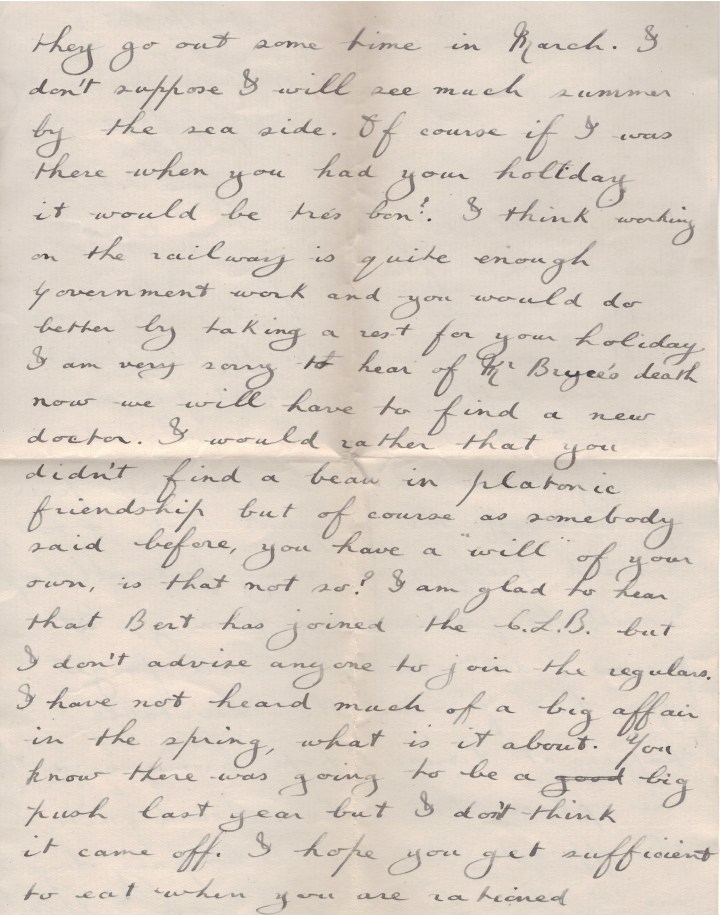 they go out some time in March. I
don't suppose I will see much summer
by the sea side. Of course if I was
there when you had your holiday
it would be très bon!. I think working
on the railway is quite enough
government work and you would do
better by taking a rest for your holiday
I am very sorry to hear of Mr Bryce's death
now we will have to find a new
doctor. I would rather that you
didn't find a beau in platonic
friendship but of course as somebody
said before, you have a "will" of your
own, is that not so? I am glad to hear
that Bert has joined the C.L.B. but
I don't advise anyone to join the regulars.
I have not heard much of a big affair
in the spring, what is it about. You
know there was going to be a good big
push last year but I don't think
it came off. I hope you get sufficient
to eat when you are rationed